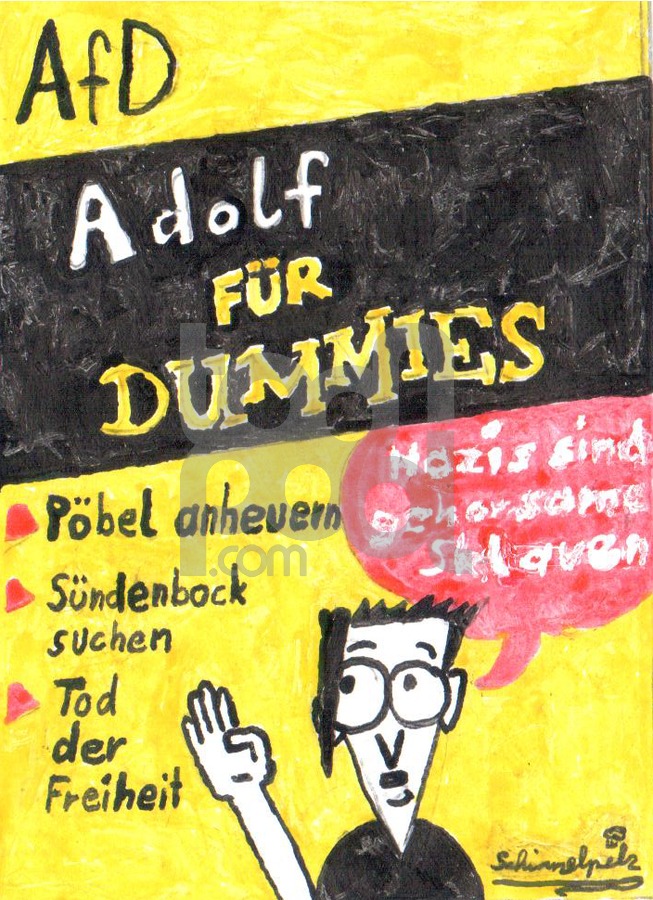 AfD
Adolf
FÜR
DUMMIES
Nazis sind
gehorsame
Sklaven
Pöbel anheuern
Sündenbock
suchen
Tod
der
Freiheit
toonpool
.com
Schimmelpelz